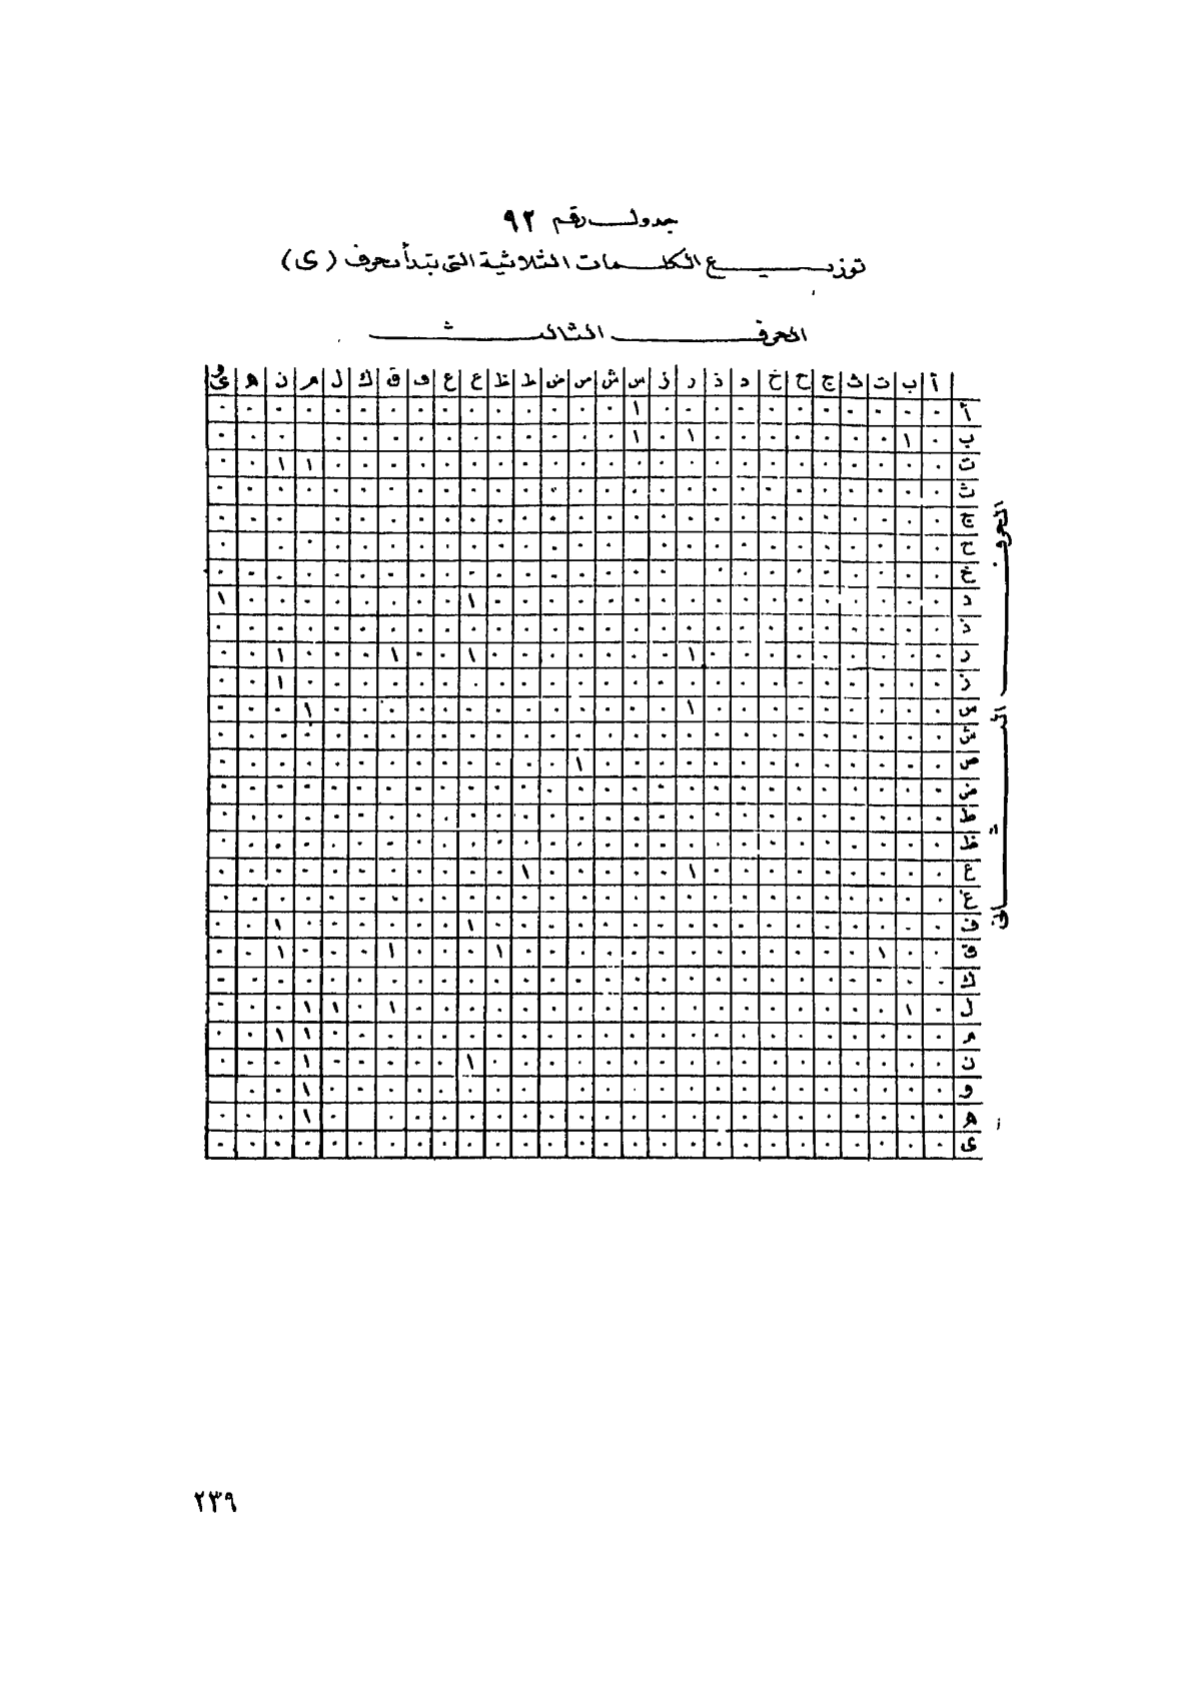 جدول رقم ٩٢
توزيع الكلمات الثلاثية التى تبتدأ بحرف (ى)
الحرف الثالث
أ ب ت ث ج ح خ د ذ ر ز س ش ص ض ط ظ ع غ ف ق ك ل م ن ه وى
أ ٠ ٠ ٠ ٠ ٠ ٠ ٠ ٠ ٠ ٠ ٠ ١ ٠ ٠ ٠ ٠ ٠ ٠ ٠ ٠ ٠ ٠ ٠ ٠ ٠ ٠ ٠
ب ٠ ١ ٠ ٠ ٠ ٠ ٠ ٠ ٠ ١ ٠ ١ ٠ ٠ ٠ ٠ ٠ ٠ ٠ ٠ ٠ ٠ ٠ ٠ ٠ ٠
ت ٠ ٠ ٠ ٠ ٠ ٠ ٠ ٠ ٠ ٠ ٠ ٠ ٠ ٠ ٠ ٠ ٠ ٠ ٠ ٠ ٠ ٠ ٠ ١ ١ ٠ ٠
ث ٠ ٠ ٠ ٠ ٠ ٠ ٠ ٠ ٠ ٠ ٠ ٠ ٠ ٠ ٠ ٠ ٠ ٠ ٠ ٠ ٠ ٠ ٠ ٠ ٠ ٠ ٠
ج ٠ ٠ ٠ ٠ ٠ ٠ ٠ ٠ ٠ ٠ ٠ ٠ ٠ ٠ ٠ ٠ ٠ ٠ ٠ ٠ ٠ ٠ ٠ ٠ ٠ ٠
ح ٠ ٠ ٠ ٠ ٠ ٠ ٠ ٠ ٠ ٠ ٠ ٠ ٠ ٠ ٠ ٠ ٠ ٠ ٠ ٠ ٠ ٠ ٠ ٠ ٠
خ ٠ ٠ ٠ ٠ ٠ ٠ ٠ ٠ ٠ ٠ ٠ ٠ ٠ ٠ ٠ ٠ ٠ ٠ ٠ ٠ ٠ ٠ ٠ ٠ ٠ ٠
د ٠ ٠ ٠ ٠ ٠ ٠ ٠ ٠ ٠ ٠ ٠ ٠ ٠ ٠ ٠ ٠ ٠ ١ ٠ ٠ ٠ ٠ ٠ ٠ ٠ ٠ ١
ذ ٠ ٠ ٠ ٠ ٠ ٠ ٠ ٠ ٠ ٠ ٠ ٠ ٠ ٠ ٠ ٠ ٠ ٠ ٠ ٠ ٠ ٠ ٠ ٠ ٠ ٠ ٠
ر ٠ ٠ ٠ ٠ ٠ ٠ ٠ ٠ ٠ ١ ٠ ٠ ٠ ٠ ٠ ٠ ٠ ١ ٠ ٠ ١ ٠ ٠ ٠ ١ ٠ ٠
ز ٠ ٠ ٠ ٠ ٠ ٠ ٠ ٠ ٠ ٠ ٠ ٠ ٠ ٠ ٠ ٠ ٠ ٠ ٠ ٠ ٠ ٠ ٠ ٠ ١ ٠ ٠
س ٠ ٠ ٠ ٠ ٠ ٠ ٠ ٠ ٠ ١ ٠ ٠ ٠ ٠ ٠ ٠ ٠ ٠ ٠ ٠ ٠ ٠ ٠ ١ ٠ ٠ ٠
ش ٠ ٠ ٠ ٠ ٠ ٠ ٠ ٠ ٠ ٠ ٠ ٠ ٠ ٠ ٠ ٠ ٠ ٠ ٠ ٠ ٠ ٠ ٠ ٠ ٠ ٠ ٠
ص ٠ ٠ ٠ ٠ ٠ ٠ ٠ ٠ ٠ ٠ ٠ ٠ ٠ ١ ٠ ٠ ٠ ٠ ٠ ٠ ٠ ٠ ٠ ٠ ٠ ٠ ٠
ض ٠ ٠ ٠ ٠ ٠ ٠ ٠ ٠ ٠ ٠ ٠ ٠ ٠ ٠ ٠ ٠ ٠ ٠ ٠ ٠ ٠ ٠ ٠ ٠ ٠ ٠ ٠
ط ٠ ٠ ٠ ٠ ٠ ٠ ٠ ٠ ٠ ٠ ٠ ٠ ٠ ٠ ٠ ٠ ٠ ٠ ٠ ٠ ٠ ٠ ٠ ٠ ٠ ٠ ٠
ظ ٠ ٠ ٠ ٠ ٠ ٠ ٠ ٠ ٠ ٠ ٠ ٠ ٠ ٠ ٠ ٠ ٠ ٠ ٠ ٠ ٠ ٠ ٠ ٠ ٠ ٠ ٠
ع ٠ ٠ ٠ ٠ ٠ ٠ ٠ ٠ ٠ ١ ٠ ٠ ٠ ٠ ٠ ١ ٠ ٠ ٠ ٠ ٠ ٠ ٠ ٠ ٠ ٠ ٠
غ ٠ ٠ ٠ ٠ ٠ ٠ ٠ ٠ ٠ ٠ ٠ ٠ ٠ ٠ ٠ ٠ ٠ ٠ ٠ ٠ ٠ ٠ ٠ ٠ ٠ ٠ ٠
ف ٠ ٠ ٠ ٠ ٠ ٠ ٠ ٠ ٠ ٠ ٠ ٠ ٠ ٠ ٠ ٠ ٠ ١ ٠ ٠ ٠ ٠ ٠ ٠ ١ ٠ ٠
ق ٠ ٠ ١ ٠ ٠ ٠ ٠ ٠ ٠ ٠ ٠ ٠ ٠ ٠ ٠ ٠ ١ ٠ ٠ ٠ ١ ٠ ٠ ٠ ١ ٠ ٠
ك ٠ ٠ ٠ ٠ ٠ ٠ ٠ ٠ ٠ ٠ ٠ ٠ ٠ ٠ ٠ ٠ ٠ ٠ ٠ ٠ ٠ ٠ ٠ ٠ ٠ ٠ ٠
ل ٠ ١ ٠ ٠ ٠ ٠ ٠ ٠ ٠ ٠ ٠ ٠ ٠ ٠ ٠ ٠ ٠ ٠ ٠ ٠ ١ ٠ ١ ١ ٠ ٠ ٠
م ٠ ٠ ٠ ٠ ٠ ٠ ٠ ٠ ٠ ٠ ٠ ٠ ٠ ٠ ٠ ٠ ٠ ٠ ٠ ٠ ٠ ٠ ٠ ١ ١ ٠ ٠
ن ٠ ٠ ٠ ٠ ٠ ٠ ٠ ٠ ٠ ٠ ٠ ٠ ٠ ٠ ٠ ٠ ٠ ١ ٠ ٠ ٠ ٠ ٠ ١ ٠ ٠ ٠
و ٠ ٠ ٠ ٠ ٠ ٠ ٠ ٠ ٠ ٠ ٠ ٠ ٠ ٠ ٠ ٠ ٠ ٠ ٠ ٠ ٠ ٠ ٠ ١ ٠ ٠
ه ٠ ٠ ٠ ٠ ٠ ٠ ٠ ٠ ٠ ٠ ٠ ٠ ٠ ٠ ٠ ٠ ٠ ٠ ٠ ٠ ٠ ٠ ١ ٠ ٠ ٠
ى ٠ ٠ ٠ ٠ ٠ ٠ ٠ ٠ ٠ ٠ ٠ ٠ ٠ ٠ ٠ ٠ ٠ ٠ ٠ ٠ ٠ ٠ ٠ ٠ ٠ ٠ ٠
الحرف الثانى
٢٣٩